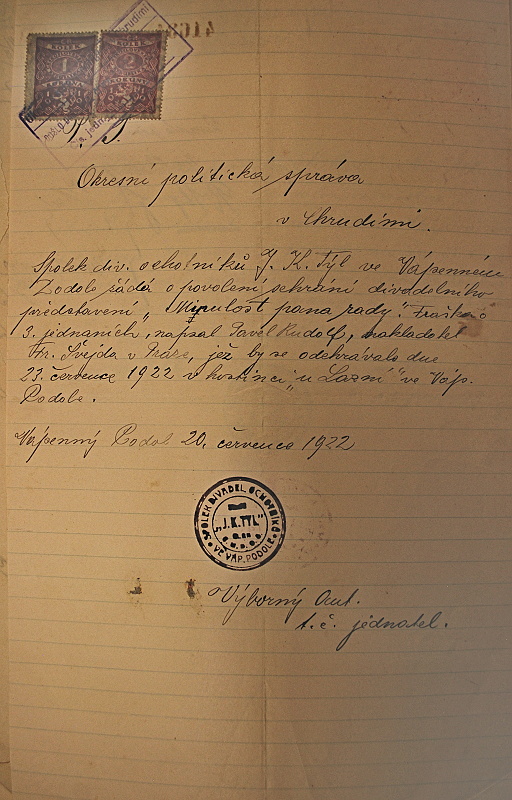 KOLEK KOLEK
1 2
KORUNY
P. T.
Okresní politická správa
v Chrudimi.
Spolek div. ochotníků J. K. Tyl ve Vápenném
Podole žádá o povolení sehrání divadelního
představení „Minulost pana rady". Fraška o
3. jednáních, napsal Pavel Rudolf, nakladatel
Fr. Švejda v Praze, jež by se odehrávalo dne
23. července 1922 v hostinci „u Lázní" ve Váp.
Podole.
Vápenný Podol 20. července 1922
SPOLEK DIVADEL. OCHOTNÍKŮ
„J. K. TYL"
VE VÁP. PODOLE
Výborný Ant.
t. č. jednatel.